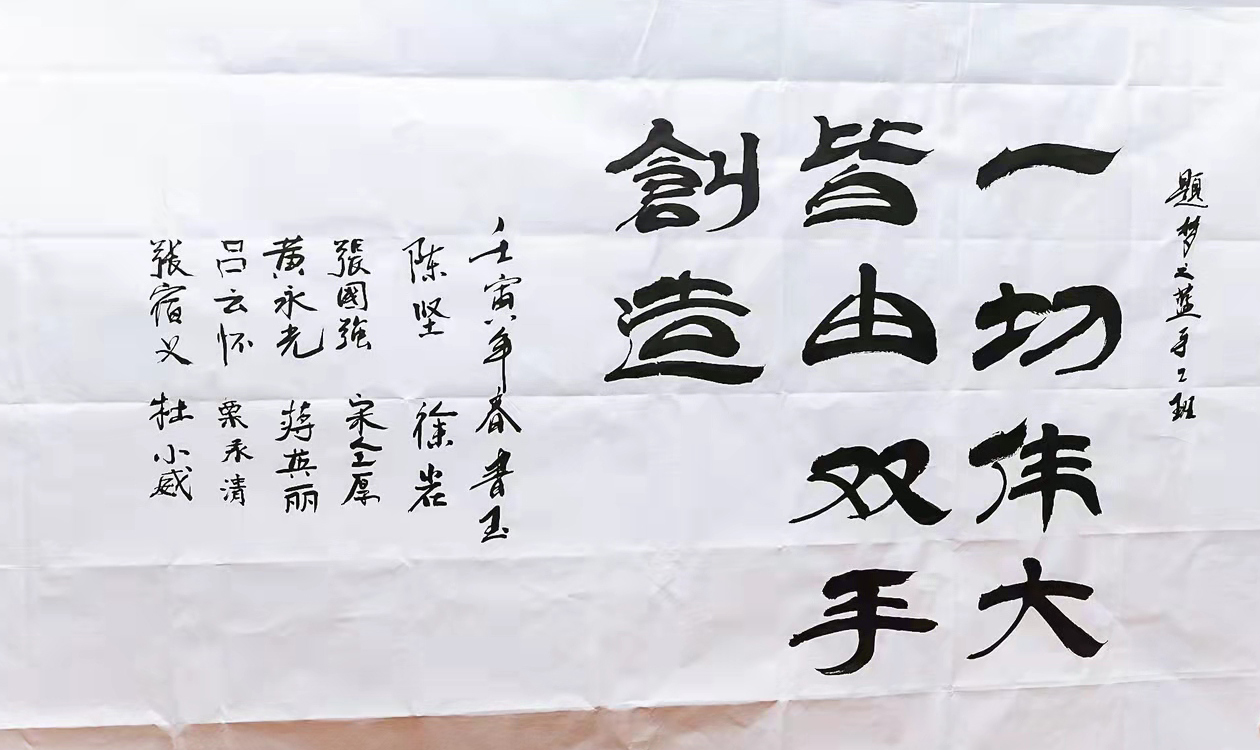 题梦之蓝手工班
一切伟大
皆由双手
創造
壬寅年春書玉
陈坚 徐岩
張國強 宋人厚
黄永光 蒋英丽
吕云怀 栗永清
張宿义 杜小威